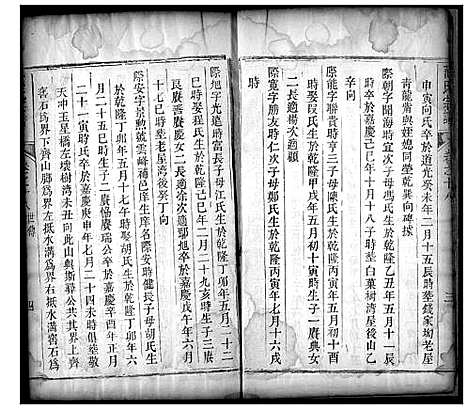 申寅向氏卒于道光癸未年二月十五辰時塟錢家坳老屋
青龍膚與姪媳同塋乾巽向碑據
際朝字 時宜次子母馮氏生於乾隆乙丑年五月十一辰
時卒於嘉慶己巳年十月十八子時塟白菓樹湾屋後山乙
辛向
際龍字聯貴時亨三子母陳氏生於乾隆丙寅年五月初十
時娶段氏生於乾隆甲戌年五月初十寅時生子一賡與女
二長適楊次適顧
際寬字勝友時仁次子母鄭氏生於乾隆丙寅年七月十六戌
時
際旭字光遠時富長子母江氏生於乾隆丁卯年五月二十二
巳時娶程氏生於乾隆己巳年二月二十九亥時生子三賡
良賡善賡慶女二長適徐次適鄂旭卒於嘉慶戊午年六月
二十八子時塟老屋湾後癸丁向
際安字景動號雲峰補邑庠生際安時健長子母胡氏生
於乾隆丁卯年五月十七午時娶胡氏生於乾隆丁卯年六
月二十五巳時生子一賡瑞公卒於嘉慶辛酉年正月
二十一寅時氏卒於嘉慶庚申年七月二十四未時俱塟敬
天冲玉星橋左壊樹湾未丑向此山與斯尋公共其界上齊
窖石為界下齊山脚為界左抵水溝為界右抵水溝窖石為
世傳
四
三